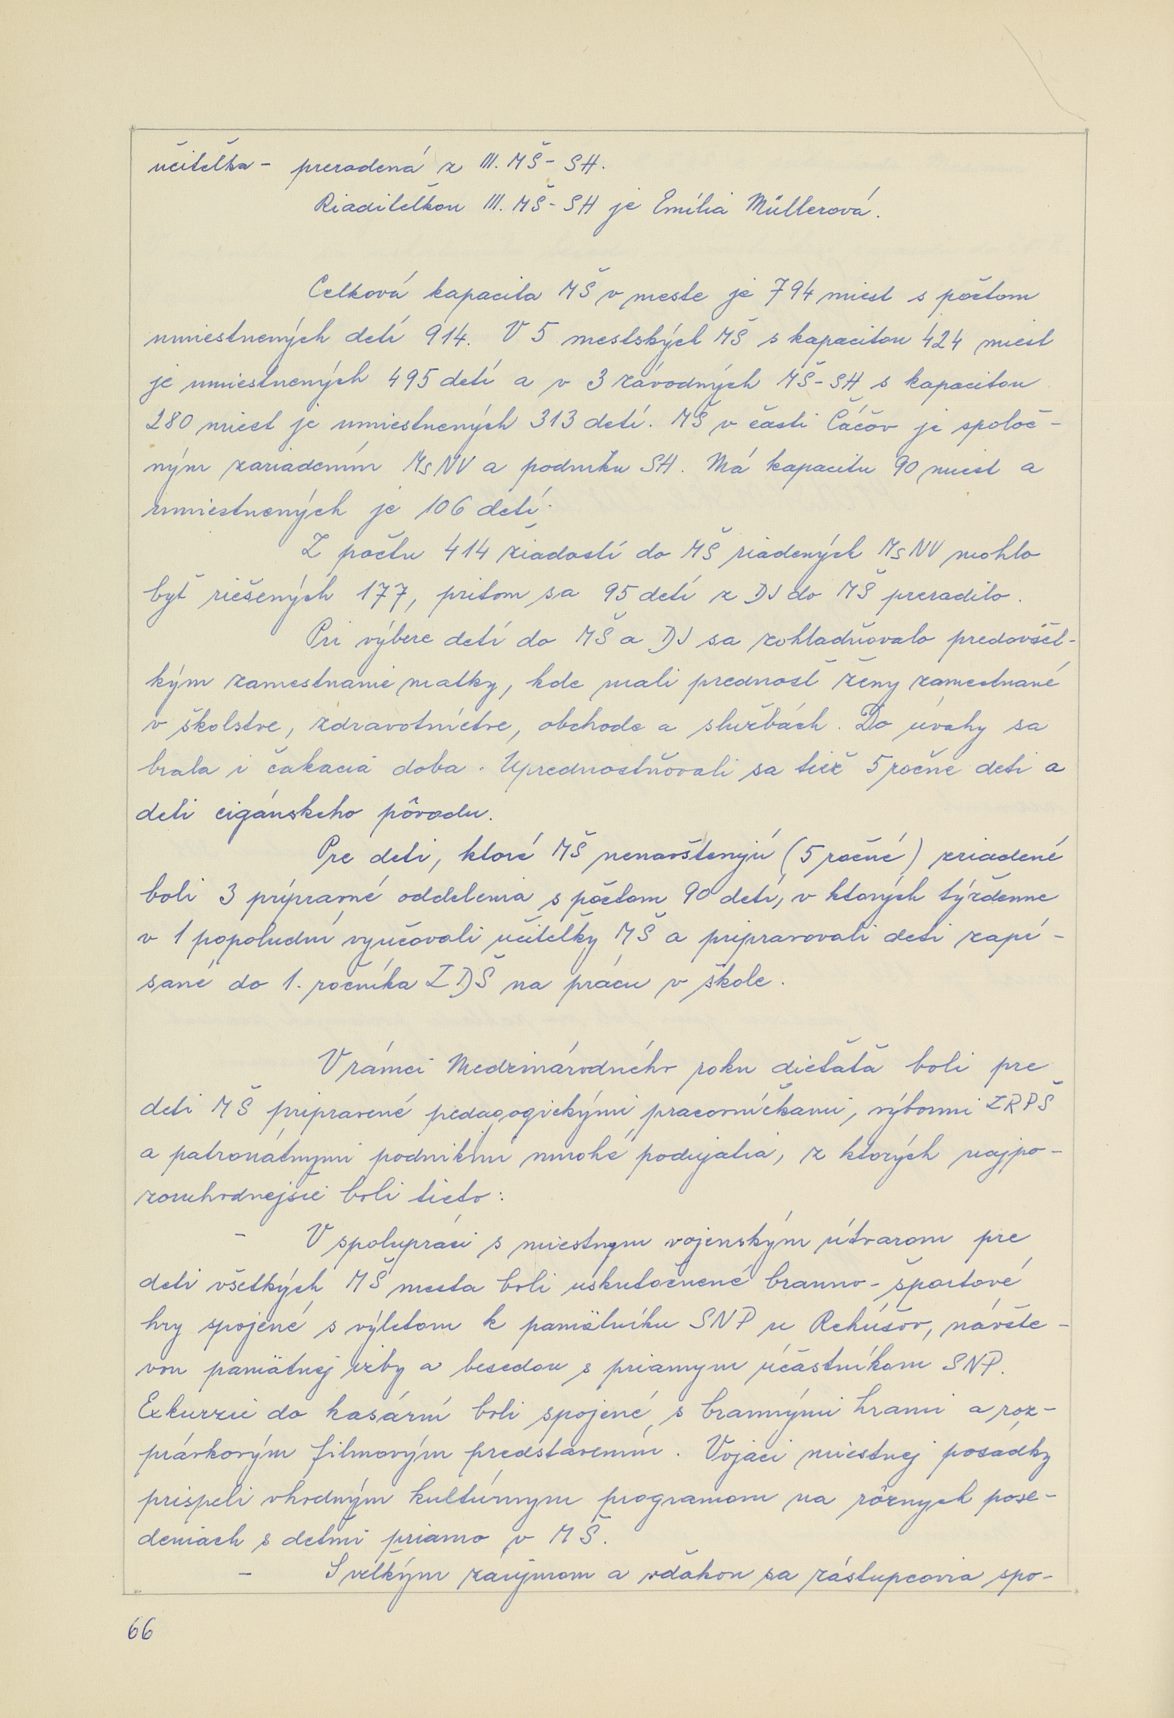 učiteľka - preradená z III. MŠ - SH.
Riaditeľkou III. MŠ - SH je Emília Müllerová.
Celková kapacita MŠ v meste je 794 miest s počtom
umiestnených detí 914. V 5 mestských MŠ s kapacitou 424 miest
je umiestnených 495 detí a v 3 závodných MŠ - SH s kapacitou
280 miest je umiestnených 313 detí. MŠ v časti Čáčov je spoloč-
ným zariadením MsNV a podniku SH. Má kapacitu 90 miest a
umiestnených je 106 detí.
Z počtu 414 žiadostí do MŠ riadených MsNV mohlo
byť riešených 177, pritom sa 95 detí z DJ do MŠ preradilo.
Pri výbere detí do MŠ a DJ sa zohladňovalo predovšet-
kým zamestnanie matky, kde mali prednosť ženy zamestnané
v školstve, zdravotníctve, obchode a službách. Do úvahy sa
brala i čakacia doba. Uprednostňovali sa tiež 5 ročné deti a
deti cigánskeho pôvodu.
Pre deti, ktoré MŠ nenavštevujú (5 ročné) zriadené
boli 3 prípravné oddelenia s počtom 90 detí, v ktorých týždenne
v 1 popoludní vyučovali učiteľky MŠ a pripravovali deti zapí-
sané do 1. ročníka ZDŠ na prácu v škole.
V rámci Medzinárodného roku dieťaťa boli pre
deti MŠ pripravené pedagogickými pracovníčkami, výbormi ZRPŠ
a patronátnymi podnikmi mnohé podujatia, z ktorých najpo-
zoruhodnejšie boli tieto:
- V spolupráci s miestnym vojenským útvarom pre
deti všetkých MŠ mesta boli uskutočnené branno - športové
hry spojené s výletom k pamätníku SNP u Rehúšov, návšte-
vou pamätnej izby a besedou s priamym účastníkom SNP.
Exkurzie do kasární boli spojené s brannými hrami a roz-
právkovým filmovým predstavením. Vojaci miestnej posádky
prispeli vhodným kultúrnym programom na rôznych pose-
deniach s deťmi priamo v MŠ.
- S veľkým záujmom a vďakou sa zástupcovia spo-
66